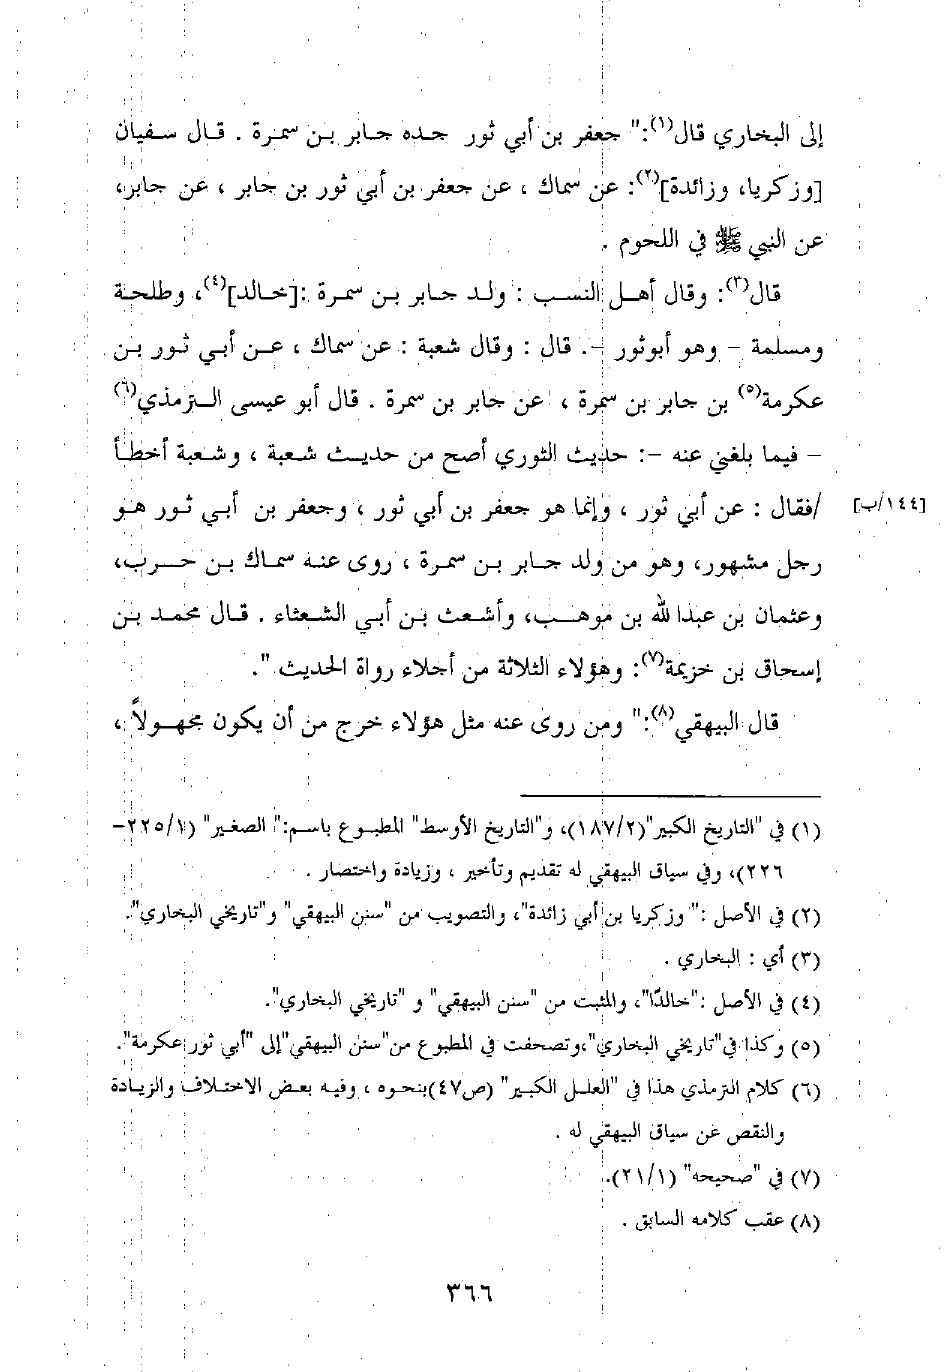 إلى البخاري قال(١):" جعفر بن أبي ثور جده جابر بن سمرة . قال سفيان
[وزكريا، وزائدة](٢): عن سماك ، عن جعفر بن أبي ثور بن جابر ، عن جابر،
عن النبي ﷺ في اللحوم .
قال(٣): وقال أهل النسب : ولد جابر بن سمرة :[خالد](٤)، وطلحة
ومسلمة – وهو أبوثور –. قال : وقال شعبة : عن سماك ، عن أبي ثور بن
عكرمة(٥) بن جابر بن سمرة ، عن جابر بن سمرة . قال أبو عيسى الترمذي(٦)
– فيما بلغني عنه –: حديث الثوري أصح من حديث شعبة ، وشعبة أخطأ
/فقال : عن أبي ثور ، وإنما هو جعفر بن أبي ثور ، وجعفر بن أبي ثور هو [١٤٤/ب]
رجل مشهور، وهو من ولد جابر بن سمرة ، روى عنه سماك بن حرب،
وعثمان بن عبدا لله بن موهب، وأشعث بن أبي الشعثاء . قال محمد بن
إسحاق بن خزيمة(٧): وهؤلاء الثلاثة من أجلاء رواة الحديث ".
قال البيهقي(٨):" ومن روى عنه مثل هؤلاء خرج من أن يكون مجهولاً ،
(١) في "التاريخ الكبير"(١٨٧/٢)، و"التاريخ الأوسط" المطبوع باسم:" الصغير" (٢٢٥/١–
٢٢٦)، وفي سياق البيهقي له تقديم وتأخير ، وزيادة واختصار .
(٢) في الأصل :" وزكريا بن أبي زائدة"، والتصويب من "سنن البيهقي" و"تاريخي البخاري".
(٣) أي : البخاري .
(٤) في الأصل :"خالدًا"، والمثبت من "سنن البيهقي" و "تاريخي البخاري".
(٥) وكذا في"تاريخي البخاري"،وتصحفت في المطبوع من"سنن البيهقي"إلى "أبي ثور عكرمة".
(٦) كلام الترمذي هذا في "العلل الكبير" (ص٤٧)بنحوه ، وفيه بعض الاختلاف والزيادة
والنقص عن سياق البيهقي له .
(٧) في "صحيحه" (٢١/١).
(٨) عقب كلامه السابق .
٣٦٦